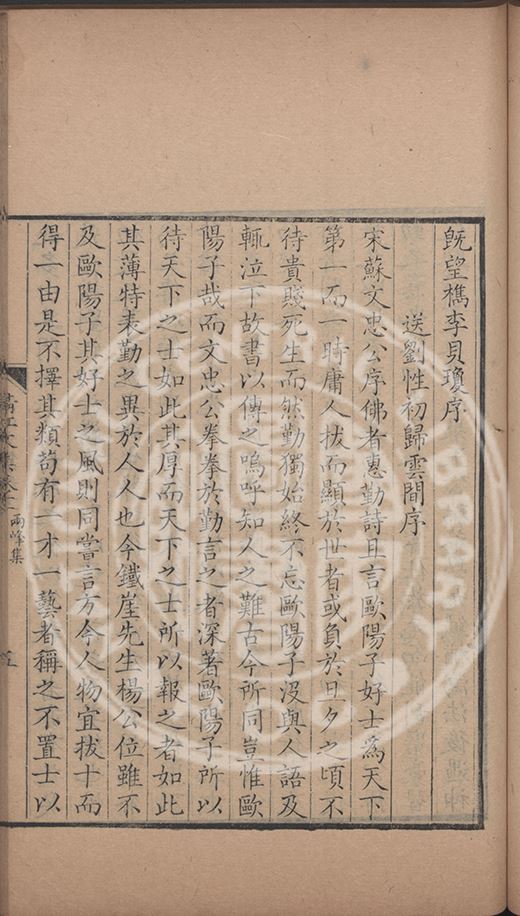 既望檇李貝瓊序
送劉性初歸雲間序
宋蘇文忠公序佛者惠勤詩且言歐陽子好士為天下
第一而一時庸人拔而顯於世者或負於旦夕之頃不
待貴賤死生而然勤獨始終不忘歐陽子沒與人語及
輒泣下故書以傳之嗚呼知人之難古今所同豈惟歐
陽子哉而文忠公拳拳於勤言之者深著歐陽子所以
待天下之士如此其厚而天下之士所以報之者如此
其薄特表勤之異於人人也今鐵崖先生楊公位雖不
及歐陽子其好士之風則同嘗言方今人物宜拔十而
得一由是不擇其類苟有一才一藝者稱之不置士以
兩峰集